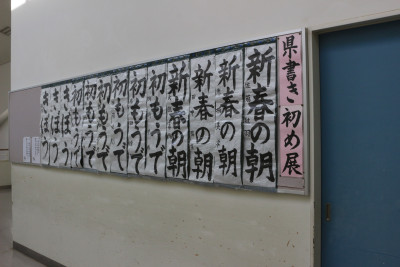 県書き初め展
新春の朝
新春の朝
新春の朝
新春の朝
初もうで
初もうで
初もうで
初もうで
初もうで
きぼう
きぼう
きぼう